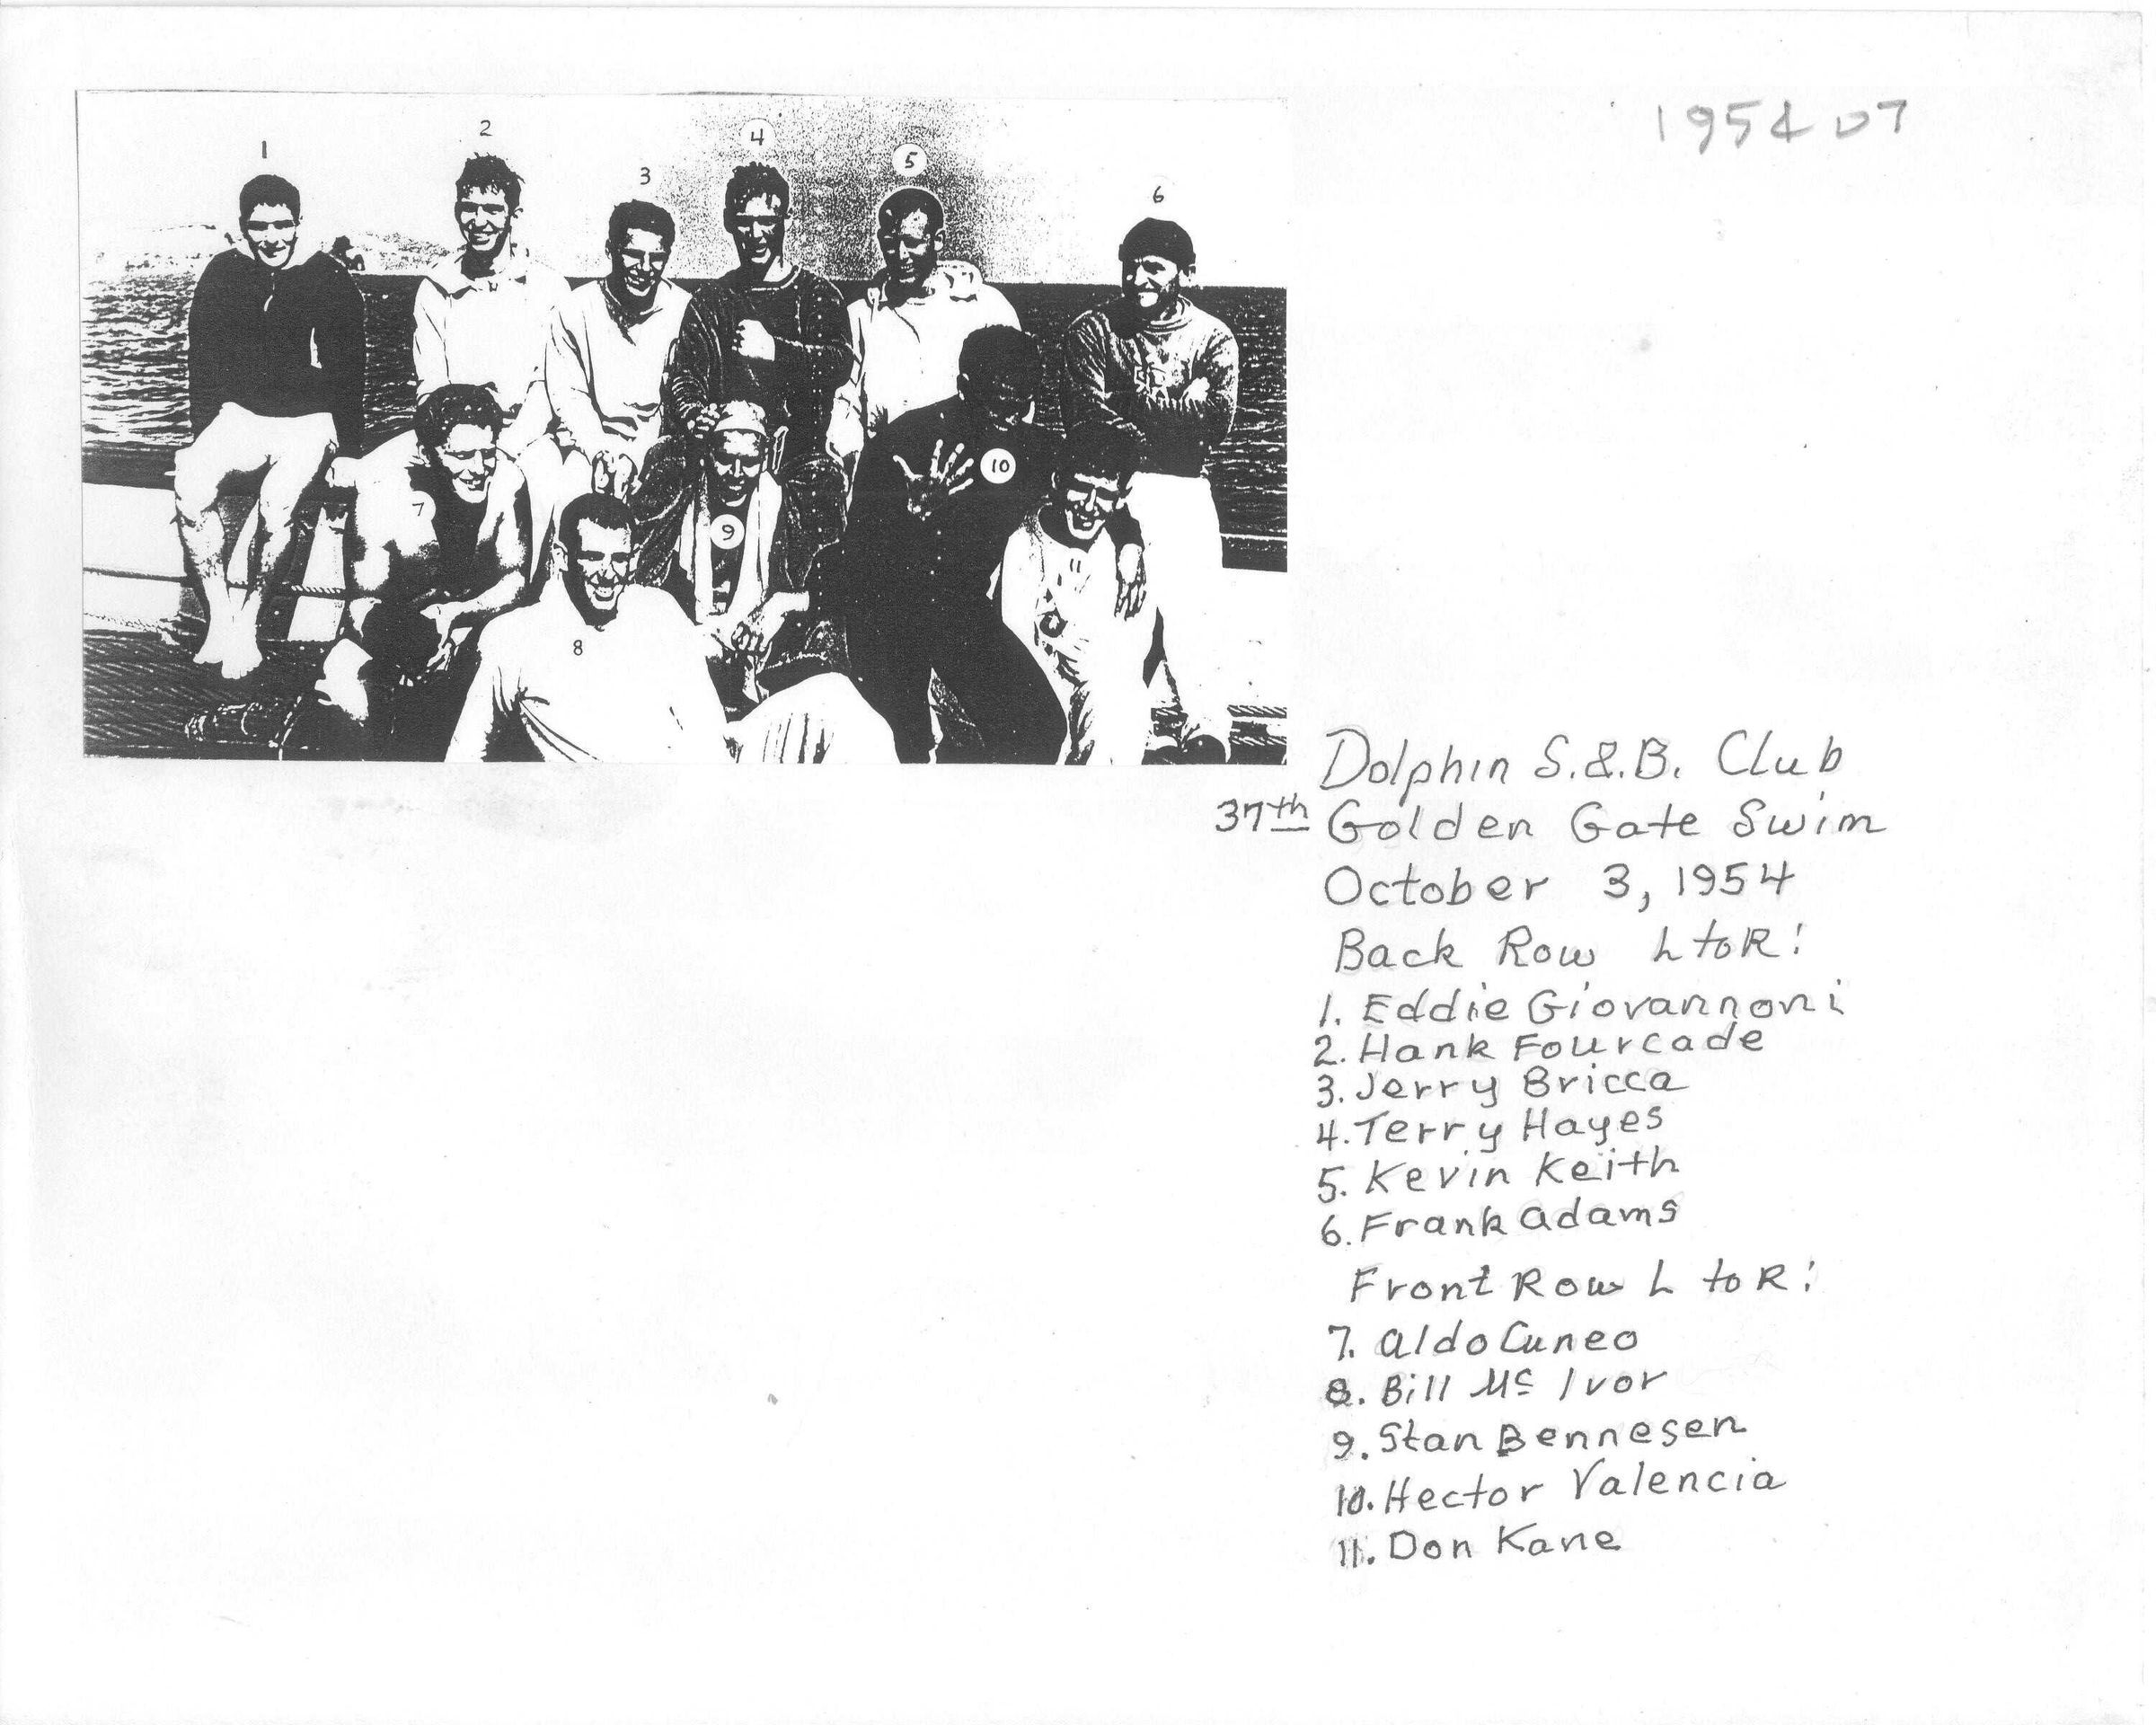 1954 07
1
2
3
4
5
6
7
8
9
10
11
Dolphin S.&.B. Club
37th Golden Gate Swim
October 3, 1954
Back Row L to R:
1. Eddie Giovannoni
2. Hank Fourcade
3. Jerry Bricca
4. Terry Hayes
5. Kevin Keith
6. Frank Adams
Front Row L to R:
7. Aldo Cuneo
8. Bill Mc Ivor
9. Stan Bennesen
10. Hector Valencia
11. Don Kane